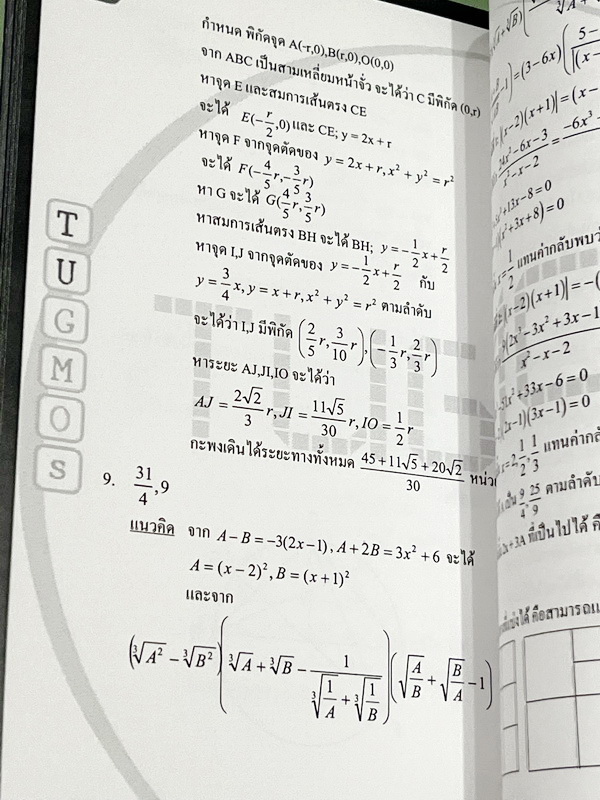 กำหนด พิกัดจุด A(-r,0),B(r,0),O(0,0)
จาก ABC เป็นสามเหลี่ยมหน้าจั่ว จะได้ว่า C มีพิกัด (0,r)
หาจุด E และสมการเส้นตรง CE
จะได้ E(-r/2,0) และ CE; y = 2x + r
หาจุด F จากจุดตัดของ y = 2x + r, x² + y² = r²
จะได้ F(-4/5 r, -3/5 r)
หา G จะได้ G(4/5 r, 3/5 r)
หาสมการเส้นตรง BH จะได้ BH; y = -1/2 x + r/2
หาจุด I,J จากจุดตัดของ y = -1/2 x + r/2 กับ
y = 3/4 x, y = x + r, x² + y² = r² ตามลำดับ
จะได้ว่า I,J มีพิกัด (2/5 r, 3/10 r), (-1/3 r, 2/3 r)
หาระยะ AJ,JI,IO จะได้ว่า
AJ = 2√2/3 r, JI = 11√5/30 r, IO = 1/2 r
กะพงเดินได้ระยะทางทั้งหมด (45 + 11√5 + 20√2)/30
9. 31/4, 9
แนวคิด จาก A - B = -3(2x - 1), A + 2B = 3x² + 6 จะได้
A = (x - 2)², B = (x + 1)²
และจาก
(∛A² - ∛B²)(∛A + ∛B - 1/(∛(1/A) + ∛(1/B)))(√(A/B) + √(B/A) - 1)
T
U
G
M
O
S
= (3 - 6x)
x² - x - 2
+13x - 8 = 0
+3x + 8) = 0
แทนค่ากลับพบว่
x² - x - 2
+33x - 6 = 0
2x - 1)(3x - 1) = 0
x = 2, 1/2, 1/3 แทนค่าก
9/4, 25/9 ตามลำดับ
2x + 3A ที่เป็นไปได้ คื
ได้ คือสามารถแ